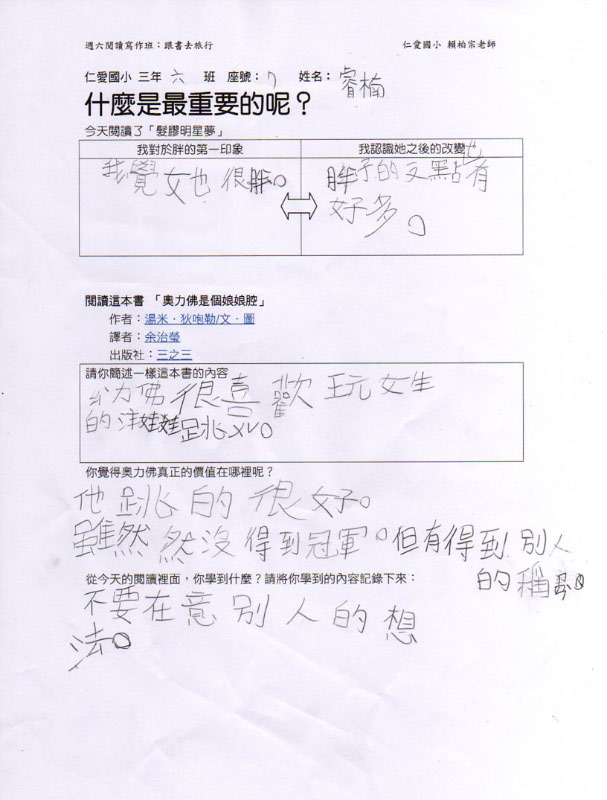 週六閱讀寫作班：跟書去旅行 仁愛國小 賴柏宗老師
仁愛國小 三年 六 班 座號：7 姓名：睿楠
什麼是最重要的呢？
今天閱讀了「髮膠明星夢」
我對於胖的第一印象 我認識她之後的改變
我覺女也很胖。
胖子的也有點
好多。
閱讀這本書 「奧力佛是個娘娘腔」
作者：湯米．狄咆勒/文．圖
譯者：余治瑩
出版社：三之三
請你簡述一樣這本書的內容
力佛很喜歡玩女生
的洋娃娃跳ㄨㄩ。
你覺得奧力佛真正的價值在哪裡呢？
他跳的很好。
雖然然沒得到冠軍。但有得到別人
的稱。
從今天的閱讀裡面，你學到什麼？請將你學到的內容記錄下來：
不要在意別人的想
法。